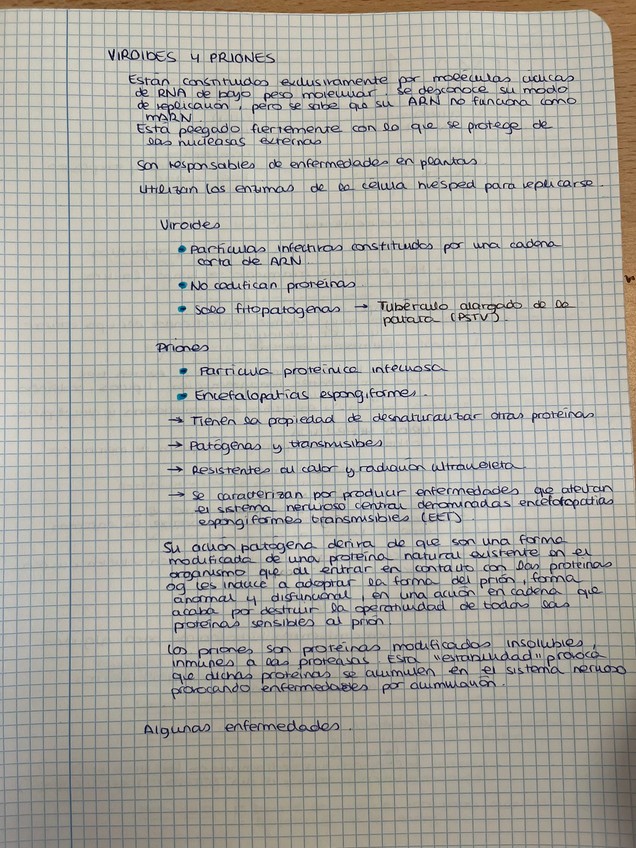 VIROIDES Y PRIONES
Están constituidos exclusivamente por moléculas cíclicas
de RNA de bajo peso molecular. Se desconoce su modo
de replicación, pero se sabe que su ARN no funciona como
mARN.
Está plegado fuertemente con lo que se protege de
las nucleasas externas
Son responsables de enfermedades en plantas
Utilizan las enzimas de la célula huésped para replicarse.
Viroides
• Partículas infectivas constituidos por una cadena
corta de ARN.
• No codifican proteínas
• Solo fitopatógenas → Tubérculo alargado de la
patata (PSTV).
Priones
• Partícula proteínica infecciosa
• Encefalopatías espongiformes.
→ Tienen la propiedad de desnaturalizar otras proteínas
→ Patógenas y transmisibes
→ Resistentes al calor y radiación ultravioleta
→ Se caracterizan por producir enfermedades que afectan
el sistema nervioso central denominadas encefalopatías
espongiformes transmisibles (EET).
Su acción patógena deriva de que son una forma
modificada de una proteína natural existente en el
organismo que al entrar en contacto con las proteínas
og les induce a adoptar la forma del prión, forma
anormal y disfuncional, en una acción en cadena que
acaba por destruir la operatividad de todas las
proteínas sensibles al prión.
Los priones son proteínas modificados insolubles,
inmunes a las proteasas. Esta "estabilidad" provoca
que dichas proteínas se acumulen en el sistema nervioso
provocando enfermedades por acumulación.
Algunas enfermedades.